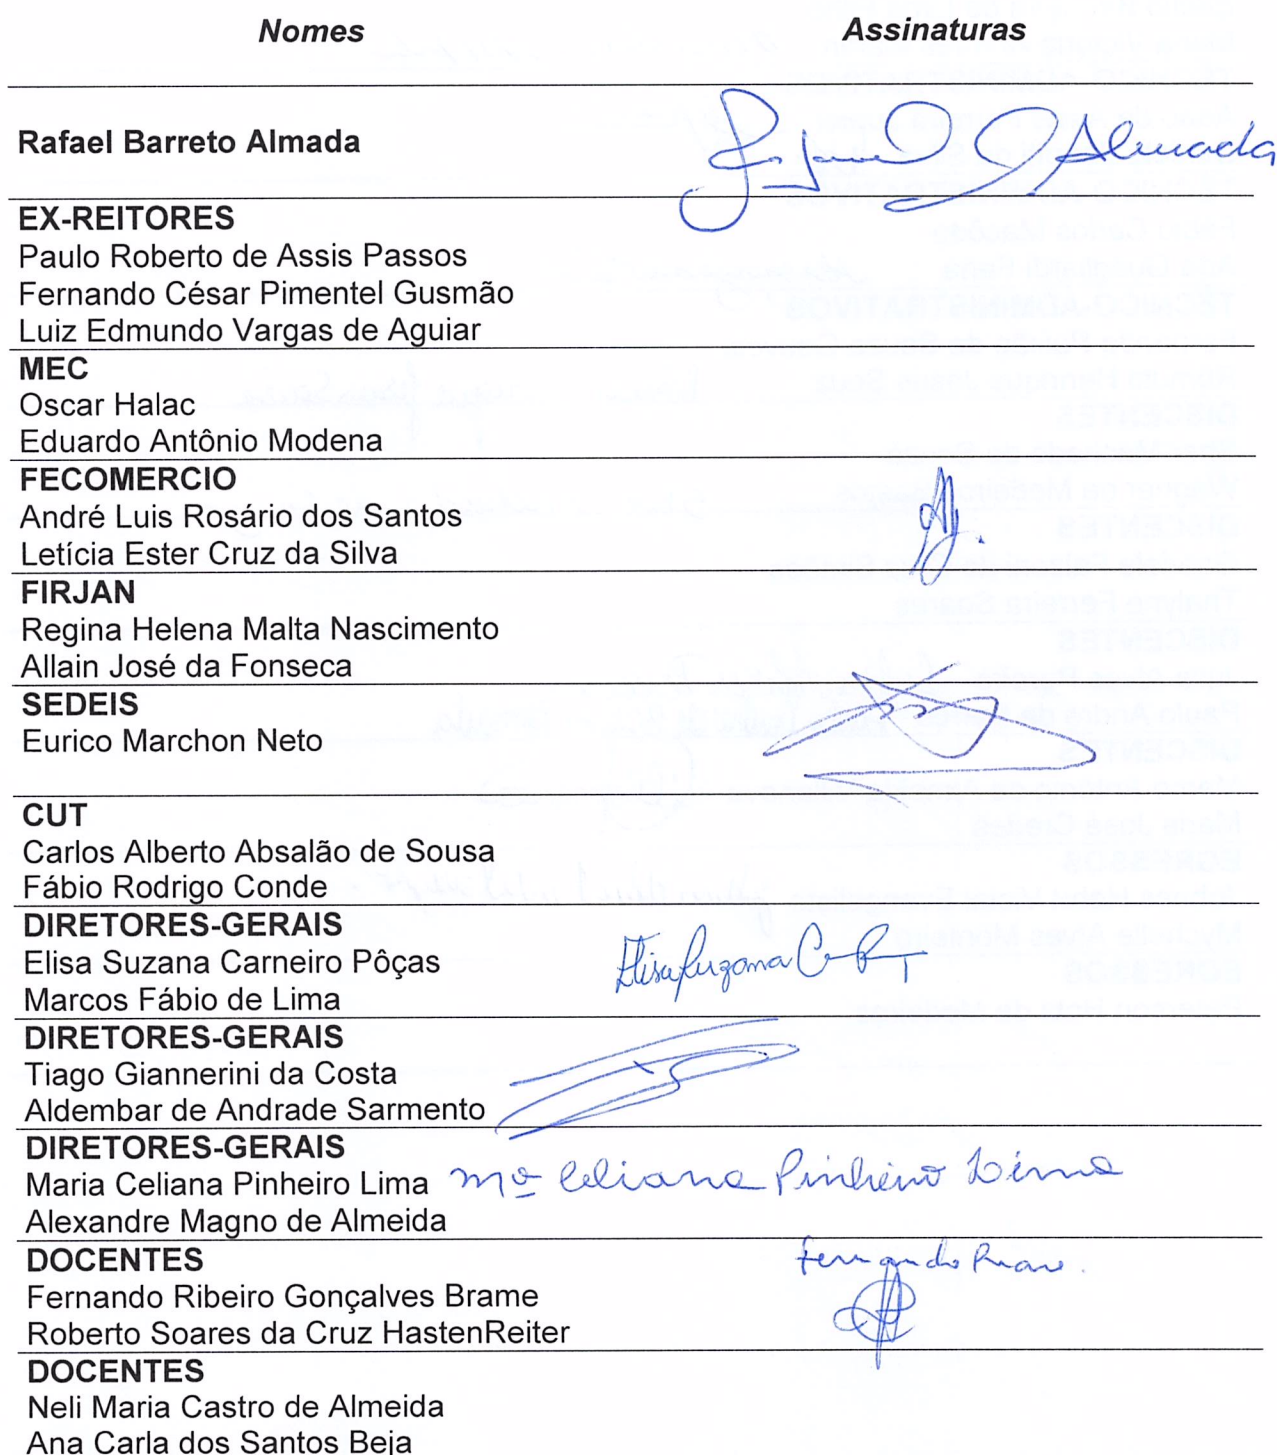 Nomes Assinaturas
Rafael Barreto Almada Almada
EX-REITORES
Paulo Roberto de Assis Passos
Fernando César Pimentel Gusmão
Luiz Edmundo Vargas de Aguiar
MEC
Oscar Halac
Eduardo Antônio Modena
FECOMERCIO
André Luis Rosário dos Santos
Letícia Ester Cruz da Silva
FIRJAN
Regina Helena Malta Nascimento
Allain José da Fonseca
SEDEIS
Eurico Marchon Neto
CUT
Carlos Alberto Absalão de Sousa
Fábio Rodrigo Conde
DIRETORES-GERAIS
Elisa Suzana Carneiro Pôças Elisa Suzana
Marcos Fábio de Lima
DIRETORES-GERAIS
Tiago Giannerini da Costa
Aldembar de Andrade Sarmento
DIRETORES-GERAIS
Maria Celiana Pinheiro Lima Mª Celiana Pinheiro Lima
Alexandre Magno de Almeida
DOCENTES Fernando
Fernando Ribeiro Gonçalves Brame
Roberto Soares da Cruz HastenReiter
DOCENTES
Neli Maria Castro de Almeida
Ana Carla dos Santos Beja